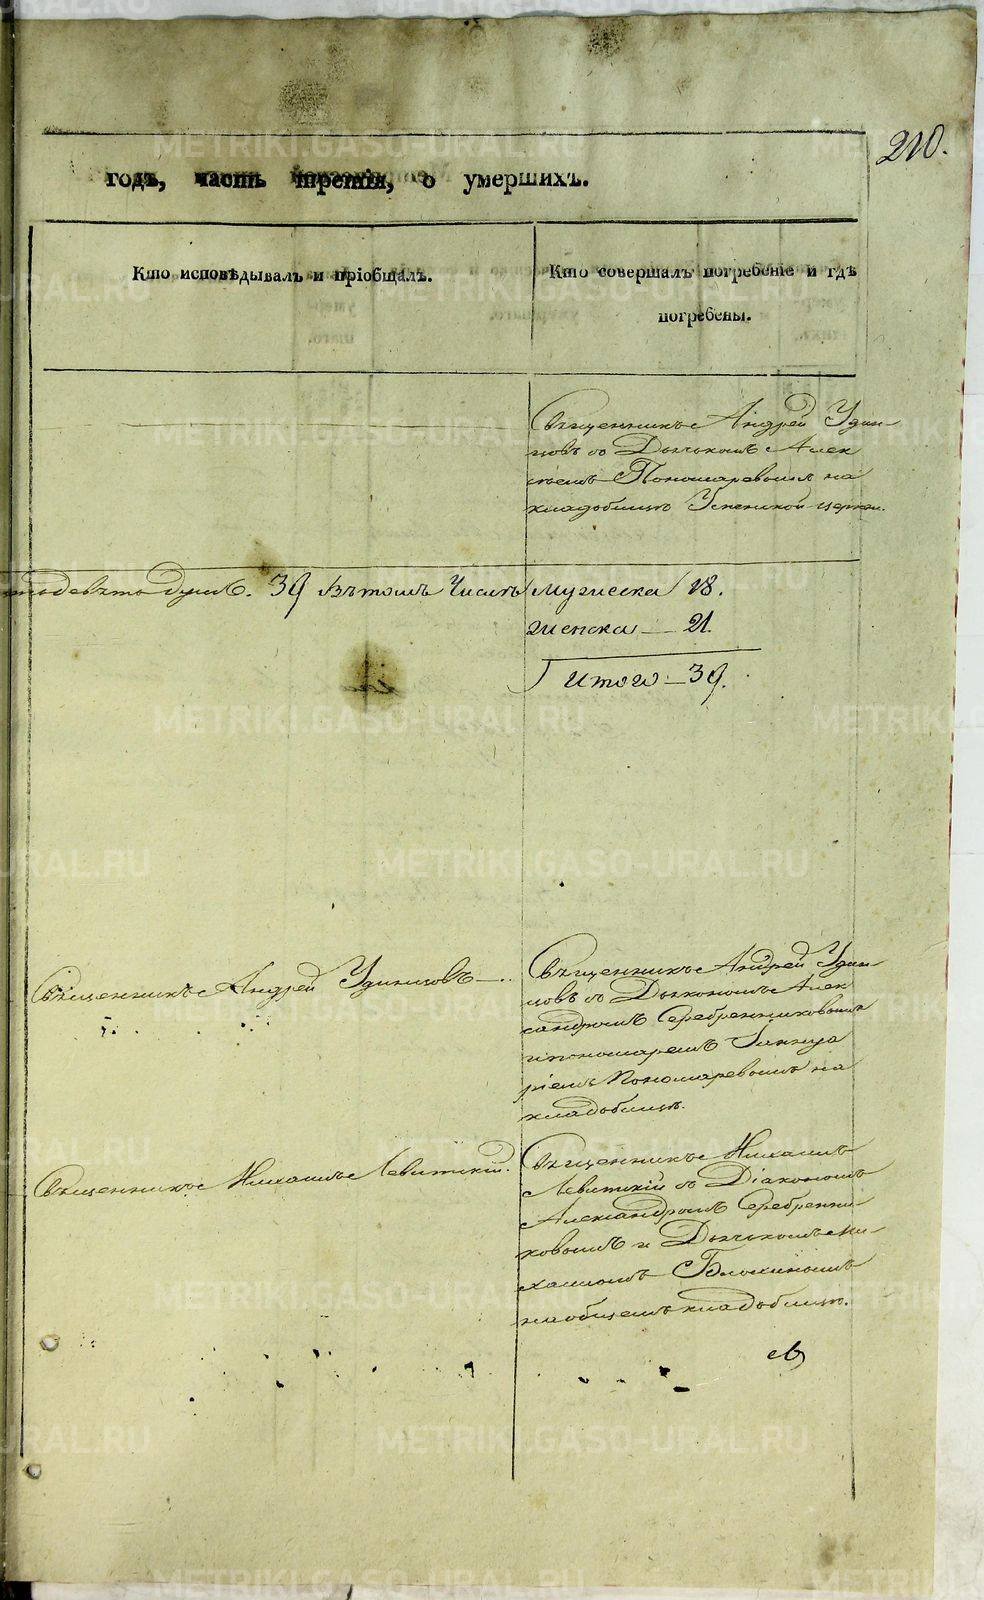 210.
годъ, часть третія, о умершихъ.
Кто исповѣдывалъ и пріобщалъ.
Кто совершалъ погребеніе и гдѣ
погребены.
Священникъ Андрей Удин-
цовъ съ Дьячкомъ Алек
сѣемъ Пономаревымъ на
кладбищѣ Успенской церкви.
душъ. 39 Въ томъ Числѣ мужеска 18.
женска — 21.
Итого — 39.
Священникъ Андрей Удинцовъ
Священникъ Андрей Удин-
цовъ съ Дьякономъ Алек
сандромъ Серебренниковымъ
и пономаремъ Іаннуа
ріемъ Пономаревымъ на
кладбищѣ.
Священникъ Михаилъ Левитскій.
Священникъ Михаилъ
Левитскій съ Діакономъ
Александромъ Серебренни-
ковымъ и Дьячкомъ Ми-
хаиломъ
на общемъ кладбищѣ.
METRIKI.GASO-URAL.RU